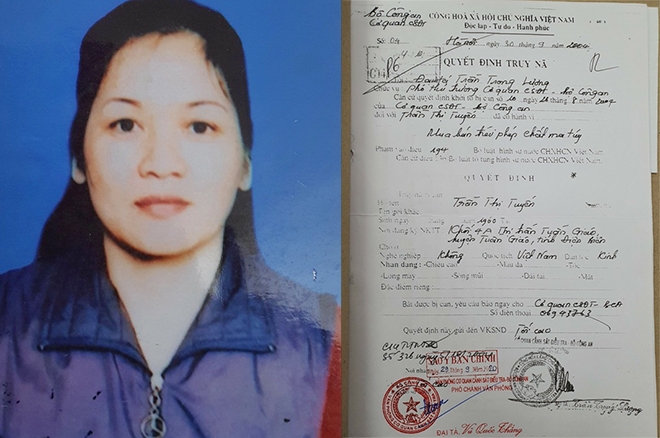 Bộ Công an
Cơ quan CSĐT
CỘNG HOÀ XÃ HỘI CHỦ NGHĨA VIỆT NAM
Độc lập - Tự do - Hạnh phúc
Số: 04
Hà Nội ngày 30 tháng 9 năm 2004
QUYẾT ĐỊNH TRUY NÃ
Đại tá Trần Trọng Lượng
Chức vụ: Phó thủ trưởng Cơ quan CSĐT - Bộ Công an
Căn cứ quyết định khởi tố bị can số 10 ngày 8 năm 2004
của Cơ quan CSĐT - Bộ Công an
đối với Trần Thị Tuyến có hành vi
Mua bán trái phép chất ma túy
Phạm vào điều 194 Bộ luật hình sự nước CHXHCN Việt Nam.
Căn cứ điều Bộ luật tố tụng hình sự nước CHXHCN Việt Nam.
QUYẾT ĐỊNH
Họ tên Trần Thị Tuyến
Tên gọi khác
Sinh ngày 1960
Nơi đăng ký NKTT Khối 4A Thị trấn Tuần Giáo,
Chỗ ở huyện Tuần Giáo, tỉnh Điện Biên
Nghề nghiệp Không Quốc tịch Việt Nam Dân tộc Kinh
Nhận dạng: -Chiều cao -Màu da -Tóc
-Lông mày -Sống mũi -Dái tai -Mắt
Đặc điểm riêng:
Bắt được bị can, yêu cầu báo ngay cho Cơ quan CSĐT - BCA
Số điện thoại 069 43763
Quyết định này, gửi đến VKSND Tối cao
CƠ QUAN CẢNH SÁT ĐIỀU TRA - BỘ CÔNG AN
Nơi nhận
SAO Y BẢN CHÍNH
Tháng 9 Năm 2020
PHÓ CHÁNH VĂN PHÒNG
ĐẠI TÁ Vũ Quốc Thắng